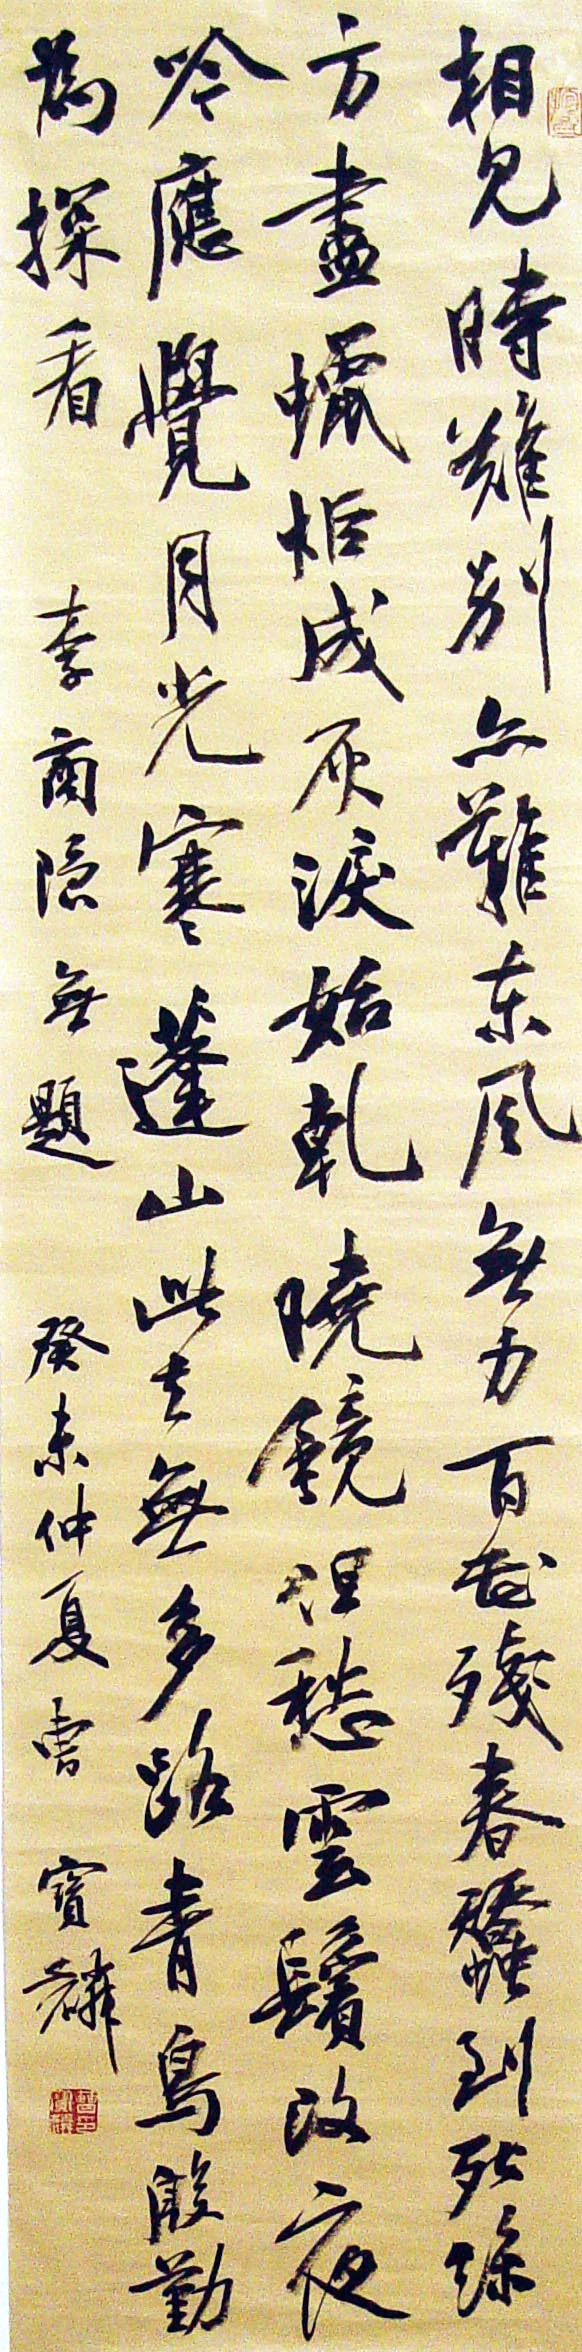 相見時難别亦難東風無力百花殘春蠶到死絲
方盡蠟炬成灰淚始乾曉鏡但愁雲鬢改夜
吟應覺月光寒蓬山此去無多路青鳥殷勤
為探看 李商隱無題 癸未仲夏曹寶麟